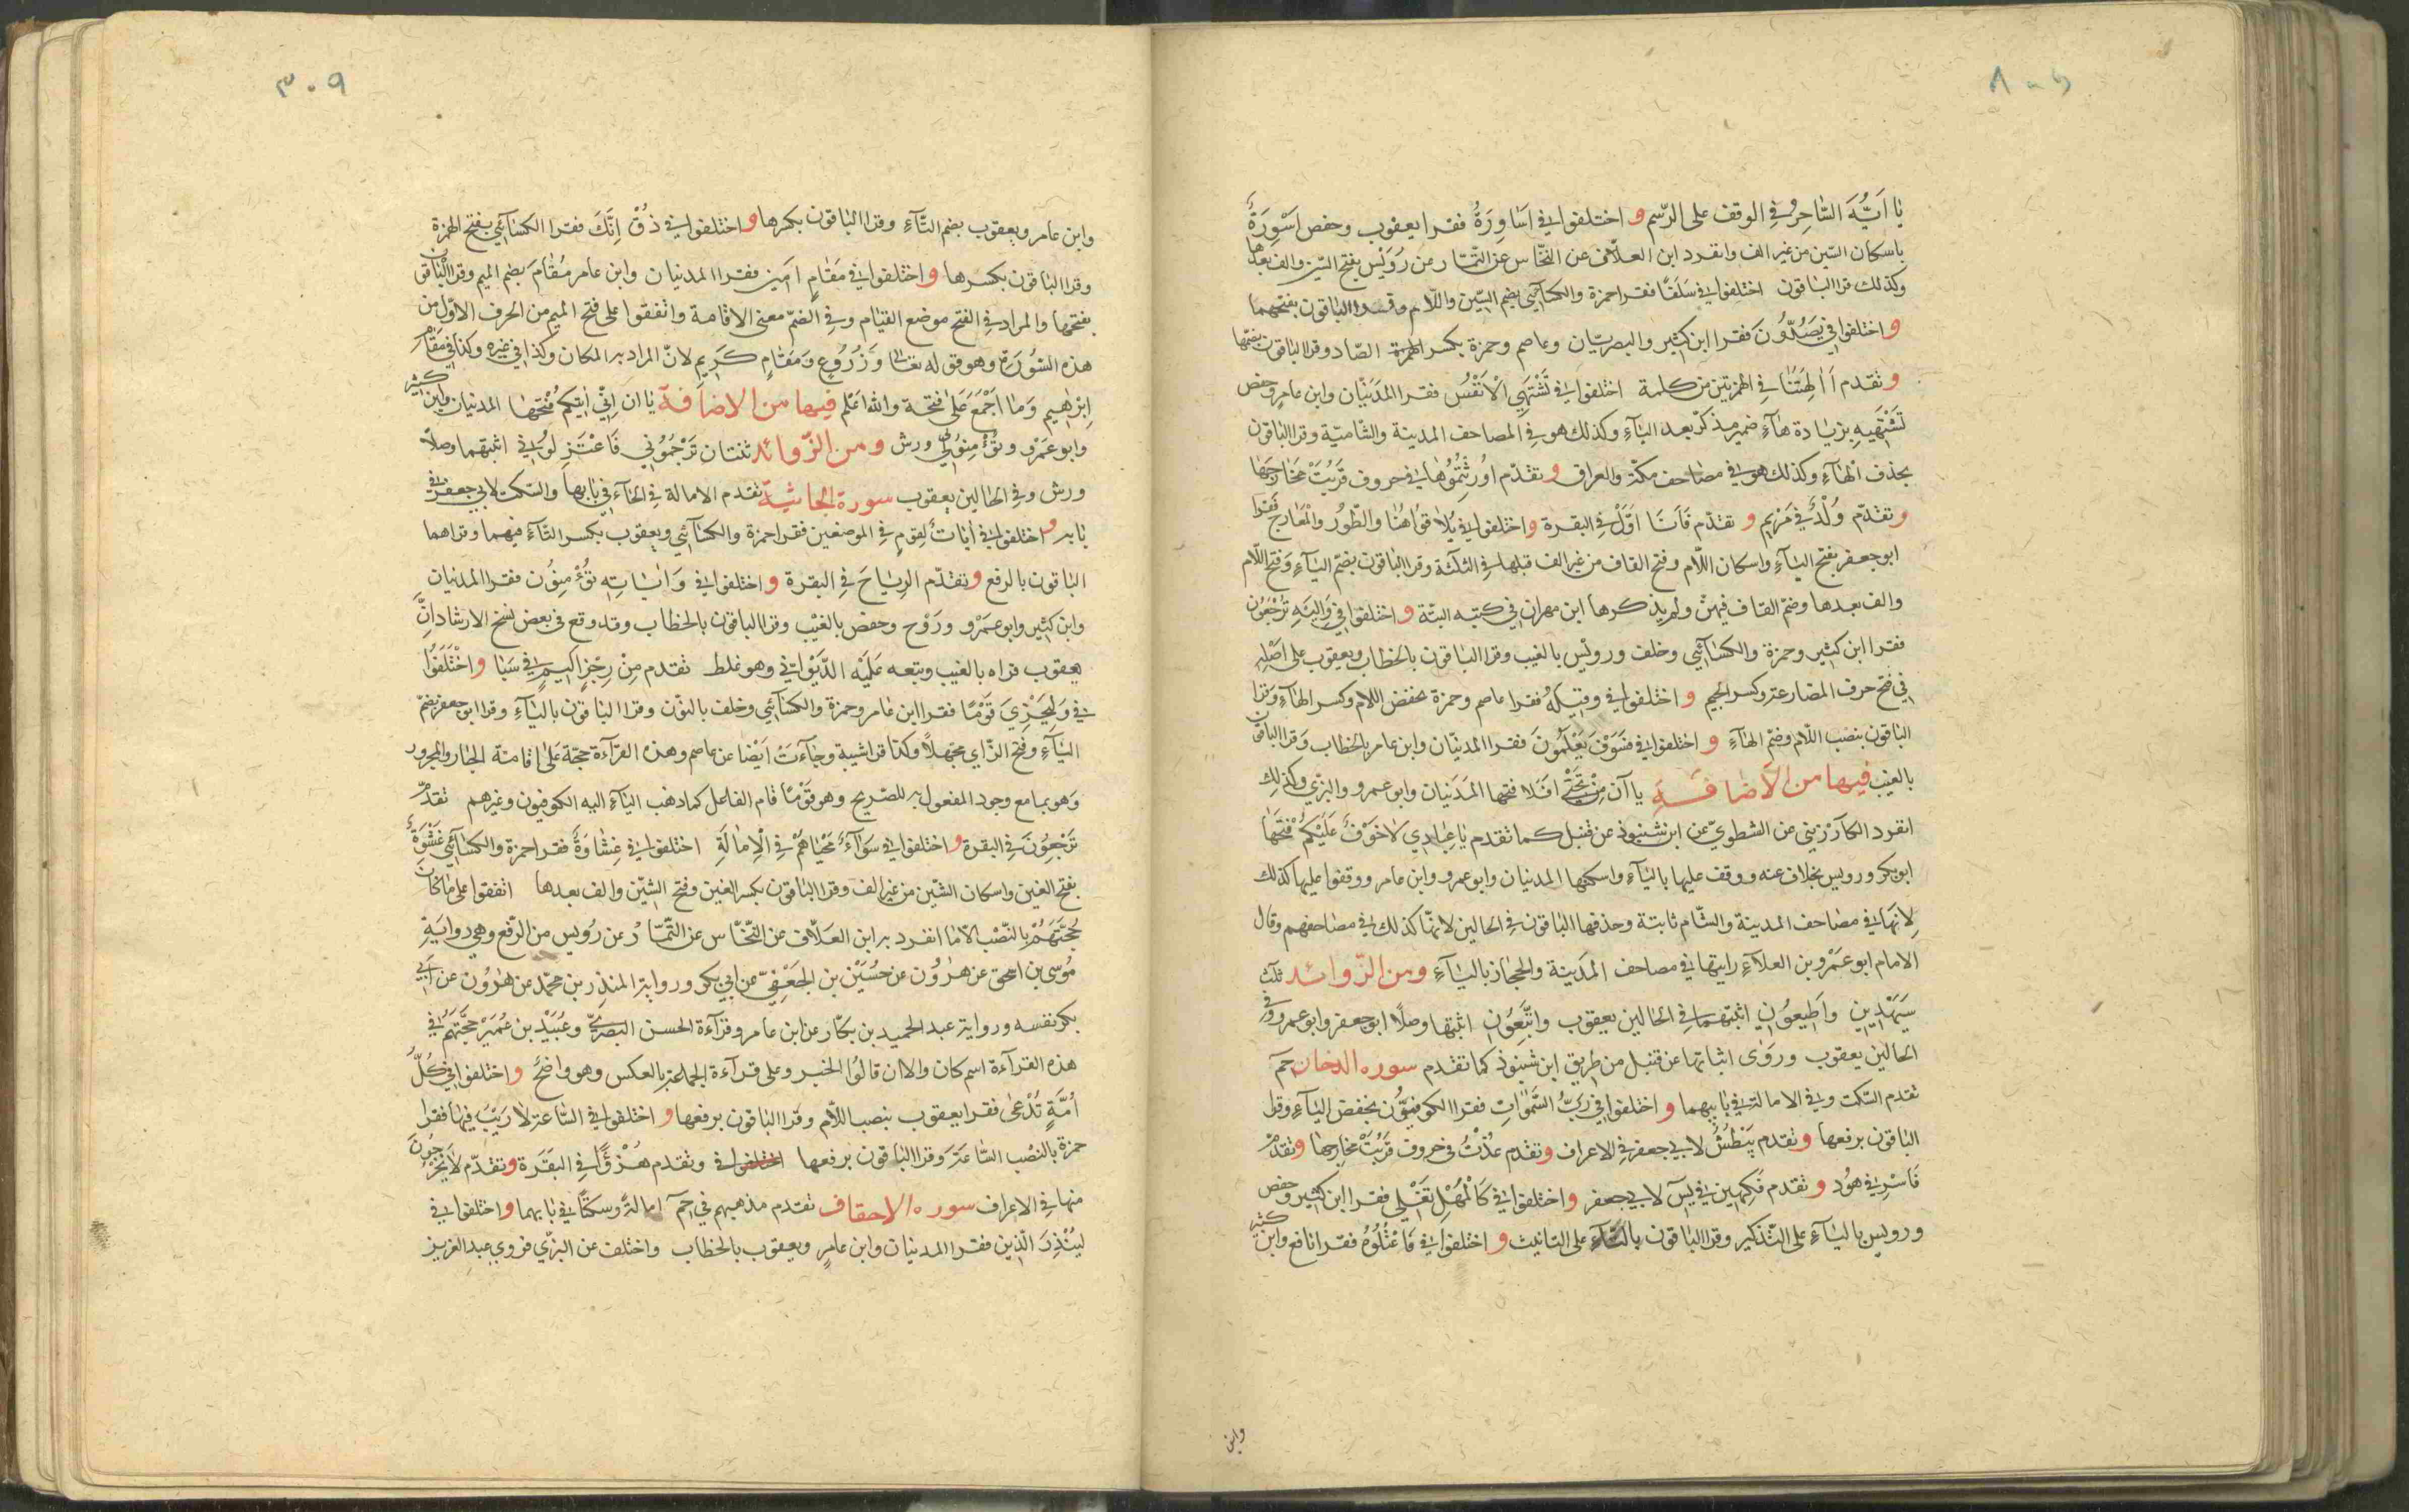 يا ايه الساحر في الوقف على الرسم و اختلفوا في اساورة فقرا يعقوب وحفص اسورة
باسكان السين من غير الف وانفرد ابن العلاف عن النخاس عن التمار عن رويس بفتح السين والف بعدها
وكذلك قرا الباقون اختلفوا في سلفا فقرا حمزة والكسائي بضم السين واللام وقرا الباقون بفتحهما
و اختلفوا في يصدون فقرا ابن كثير والبصريان وعاصم وحمزة بكسر الصاد وقرا الباقون بضمها
و تقدم ءالهتنا في الهمزتين من كلمة اختلفوا في تشتهي الانفس فقرا المدنيان وابن عامر وحفص
تشتهيه بزيادة هاء ضمير مذكر بعد الياء وكذلك هو في المصاحف المدينة والشامية وقرا الباقون
بحذف الهاء وكذلك هو في مصاحف مكة والعراق و تقدم اورثتموها في حروف قربت مخارجها
و تقدم ولد في مريم و تقدم فانا اول في البقرة و اختلفوا في يلاقوا هنا والطور والمعارج فقرا
ابو جعفر بفتح الياء واسكان اللام وفتح القاف من غير الف قبلها في الثلثة وقرا الباقون بضم الياء وفتح اللام
والف بعدها وضم القاف فيهن ولم يذكرها ابن مهران في كتبه البتة و اختلفوا في واليه ترجعون
فقرا ابن كثير وحمزة والكسائي وخلف ورويس بالغيب وقرا الباقون بالخطاب ويعقوب على اصله
في فتح حرف المضارعة وكسر الجيم و اختلفوا في وقيله فقرا عاصم وحمزة بخفض اللام وكسر الهاء وقرا
الباقون بنصب اللام وضم الهاء و اختلفوا في فسوف يعلمون فقرا المدنيان وابن عامر بالخطاب وقرا الباقون
بالغيب فيها من الاضافة ياآن من تحتي افلا فتحها المدنيان وابو عمرو والبزي وكذلك
انفرد الكارزيني عن الشطوي عن ابن شنبوذ عن قنبل كما تقدم يا عبادي لا خوف عليكم فتحها
ابو بكر ورويس بخلاف عنه ووقف عليها بالياء واسكنها المدنيان وابو عمرو وابن عامر ووقفوا عليها كذلك
لانها في مصاحف المدينة والشام ثابتة وحذفها الباقون في الحالين لانها كذلك في مصاحفهم وقال
الامام ابو عمرو بن العلاء رايتها في مصاحف المدينة والحجاز بالياء ومن الزوائد ثلث
سيهدين واطيعون اثبتهما في الحالين يعقوب واتبعون اثبتها وصلا ابو جعفر وابو عمرو وفي
الحالين يعقوب وروى اثباتها عن قنبل من طريق ابن شنبوذ كما تقدم سورة الدخان حم
تقدم السكت وفي الامالة في بابيهما و اختلفوا في رب السموات فقرا الكوفيون بخفض الباء وقرا
الباقون برفعها و تقدم يبطش لابي جعفر في الاعراف و تقدم عذت في حروف قربت مخارجها و تقدم
فاسر في هود و تقدم فكهين في يس لابي جعفر و اختلفوا في كالمهل تغلي فقرا ابن كثير وحفص
ورويس بالياء على التذكير وقرا الباقون بالتاء على التانيث و اختلفوا في فاعتلوه فقرا نافع وابن كثير
وابن
٣٠٩
وابن عامر ويعقوب بضم التاء وقرا الباقون بكسرها و اختلفوا في ذق انك فقرا الكسائي بفتح الهمزة
وقرا الباقون بكسرها و اختلفوا في مقام امين فقرا المدنيان وابن عامر مقام بضم الميم وقرا الباقون
بفتحها والمراد في الفتح موضع القيام وفي الضم معنى الاقامة واتفقوا على فتح الميم من الحرف الاول من
هذه السورة وهو قوله تعالى وزروع ومقام كريم لان المراد به المكان وكذا في غيره وكذا في مقام
ابراهيم وما اجمع على فتحة والله اعلم فيها من الاضافة ياان اني اتيكم فتحها المدنيان وابن كثير
وابو عمرو وتؤمنوا لي ورش ومن الزوائد ثنتان ترجموني فاعتزلون اثبتهما وصلا
ورش وفي الحالين يعقوب سورة الجاثية تقدم الامالة في الحاء في بابها والسكت لابي جعفر في
بابه و اختلفوا في ايات لقوم في الموضعين فقرا حمزة والكسائي ويعقوب بكسر التاء فيهما وقراهما
الباقون بالرفع و تقدم الرياح في البقرة و اختلفوا في واياته تؤمنون فقرا المدنيان
وابن كثير وابو عمرو وروح وحفص بالغيب وقرا الباقون بالخطاب وقد وقع في بعض نسخ الارشاد ان
يعقوب قراه بالغيب وتبعه عليه الديواني وهو غلط تقدم من رجز اليم في سبا و اختلفوا
في وليجزي قوما فقرا ابن عامر وحمزة والكسائي وخلف بالنون وقرا الباقون بالياء وقرا ابو جعفر بضم
الياء وفتح الزاي مجهلا وكذا قرا شيبة وجاءت ايضا عن عاصم وهذه القراءة حجة على اقامة الجار والمجرور
وهو بما مع وجود المفعول به الصريح وهو قوما قام الفاعل كما ذهب الياء اليه الكوفيون وغيرهم تقدم
ترجعون في البقرة و اختلفوا في سواء محياهم في الامالة اختلفوا في غشاوة فقرا حمزة والكسائي غشوة
بفتح الغين واسكان الشين من غير الف وقرا الباقون بكسر الغين وفتح الشين والف بعدها اتفقوا على ما كان
حجتهم بالنصب الا ما انفرد به ابن العلاف عن النخاس عن التمار عن رويس من الرفع وهي رواية
موسى بن اسحق عن هارون عن حسين بن الجعفي عن ابي بكر ورواية المنذر بن محمد عن هارون عن ابي
بكر نفسه ورواية عبد الحميد بن بكار عن ابن عامر وقراءة الحسن البصري وعبيد بن عمير حجتهم في
هذه القراءة اسم كان والا ان قالوا الخبر وعلى قراءة الجماعة بالعكس وهو واضح و اختلفوا في كل
امة تدعى فقرا يعقوب بنصب اللام وقرا الباقون برفعها و اختلفوا في الساعة لا ريب فيها فقرا
حمزة بالنصب الساعة وقرا الباقون برفعها اختلفوا في وتقدم هزؤا في البقرة وتقدم لا يخرجون
منها في الاعراف سورة الاحقاف تقدم مذهبهم في حم امالة وسكتا في بابهما و اختلفوا في
لينذر الذين فقرا المدنيان وابن عامر ويعقوب بالخطاب واختلف عن البزي فروى عبد العزيز